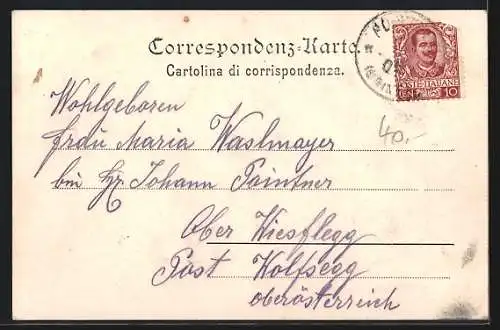 Correspondenz-Karte.
Cartolina di corrispondenza.
POSTE ITALIANE
CENT. 10
40,-
Wohlgeboren
Frau Maria Waslmayer
bei Hr. Johann Pointner
Ober Wiesflegg
Post Wolfsegg
Oberösterreich